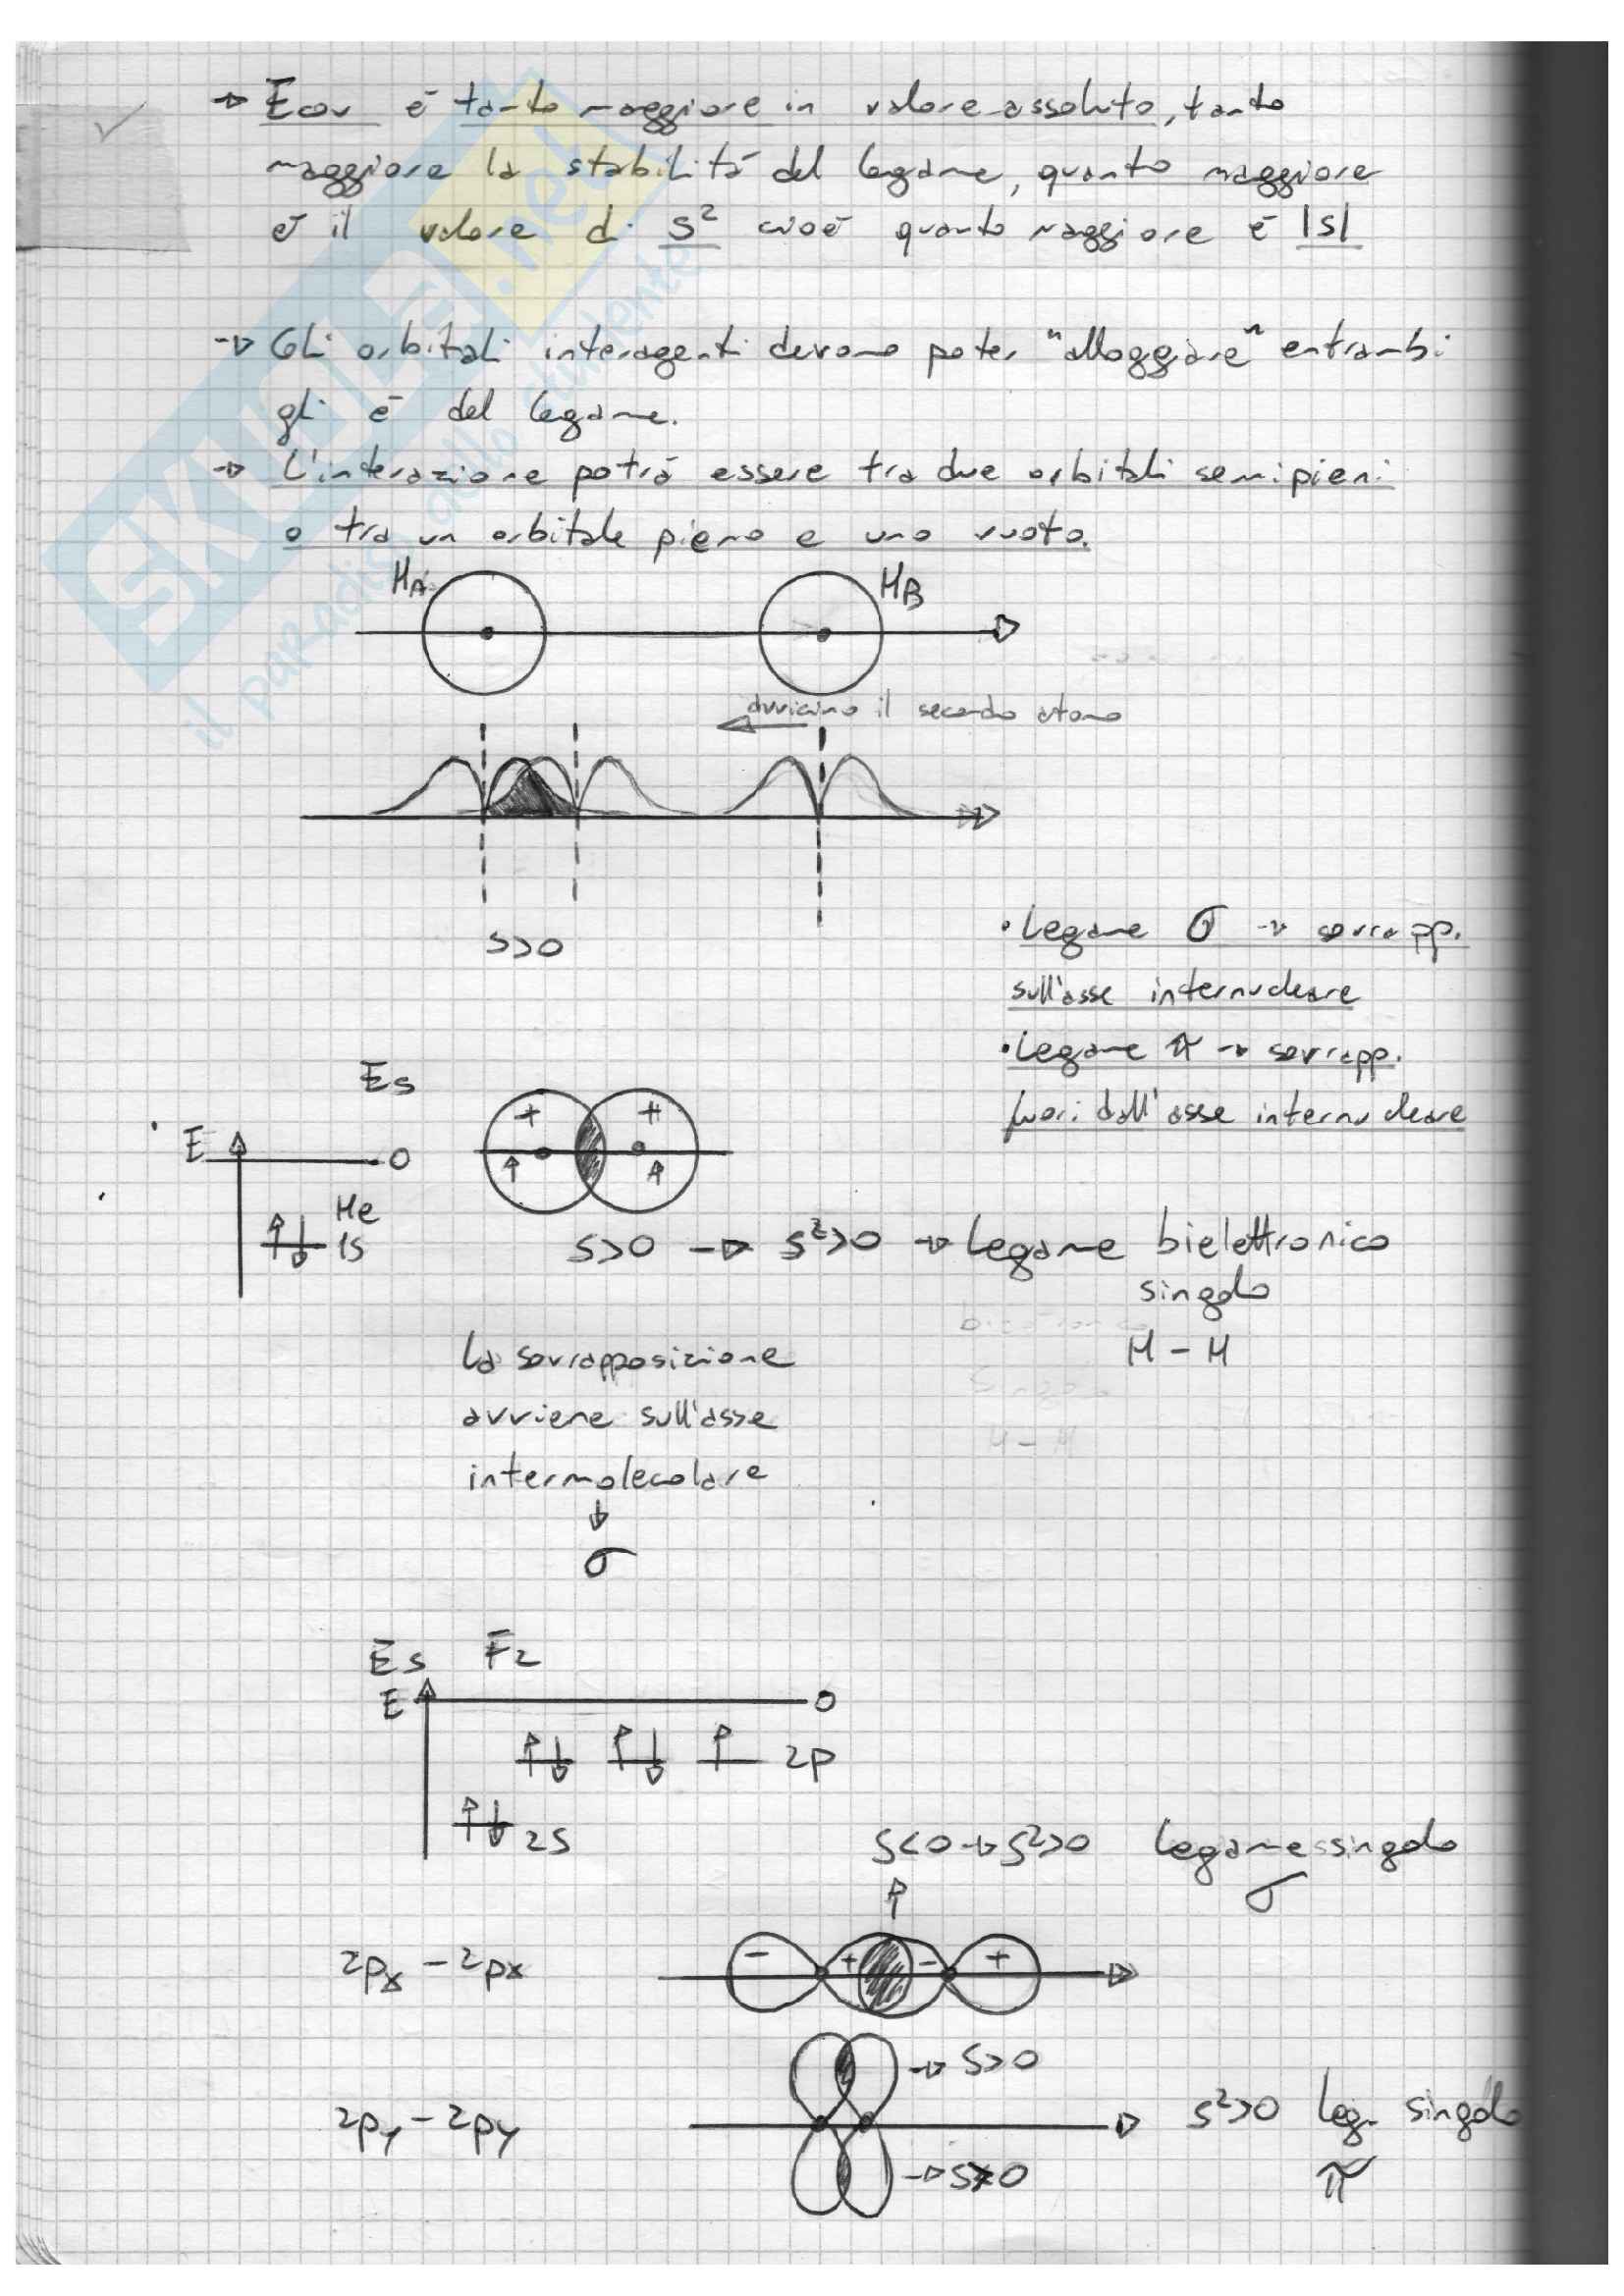 → Ecov è tanto maggiore in valore assoluto, tanto
maggiore la stabilità del legame, quanto maggiore
è il valore di S² cioè quanto maggiore è |S|
→ Gli orbitali interagenti devono poter "alloggiare" entrambi
gli e⁻ del legame.
→ L'interazione potrà essere tra due orbitali semipieni
o tra un orbitale pieno e uno vuoto.
HA HB
avvicino il secondo atomo
S>0
• Legame σ → sovrapp.
sull'asse internucleare
• Legame π → sovrapp.
fuori dall'asse internucleare
Es
E 0
He
1s
+ +
S>0 → S²>0 → Legame bielettronico
singolo
H - H
La sovrapposizione
avviene sull'asse
intermolecolare
↓
σ
Es F2
E 0
2p
2s
S<0 → S²>0 legame singolo
σ
2px - 2px
- + - +
→ S>0
2py - 2py
S²>0 leg. singolo
π
SKUOLA.net
il paradiso dello studente